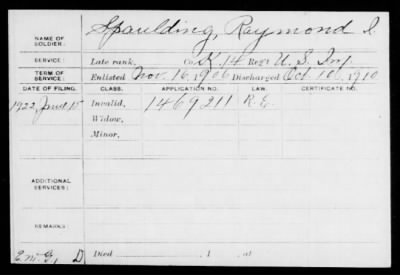 NAME OF SOLDIER: Spaulding, Raymond S.
SERVICE: Late rank, Co. K, 14 Reg't U. S. Inf.
TERM OF SERVICE: Enlisted Nov. 16, 1906 Discharged Oct 10, 1910
DATE OF FILING. CLASS. APPLICATION NO. LAW. CERTIFICATE NO.
1922, June 15 Invalid, 1469211 R.E.
Widow,
Minor,
ADDITIONAL SERVICES:
REMARKS:
Died , 1 , at